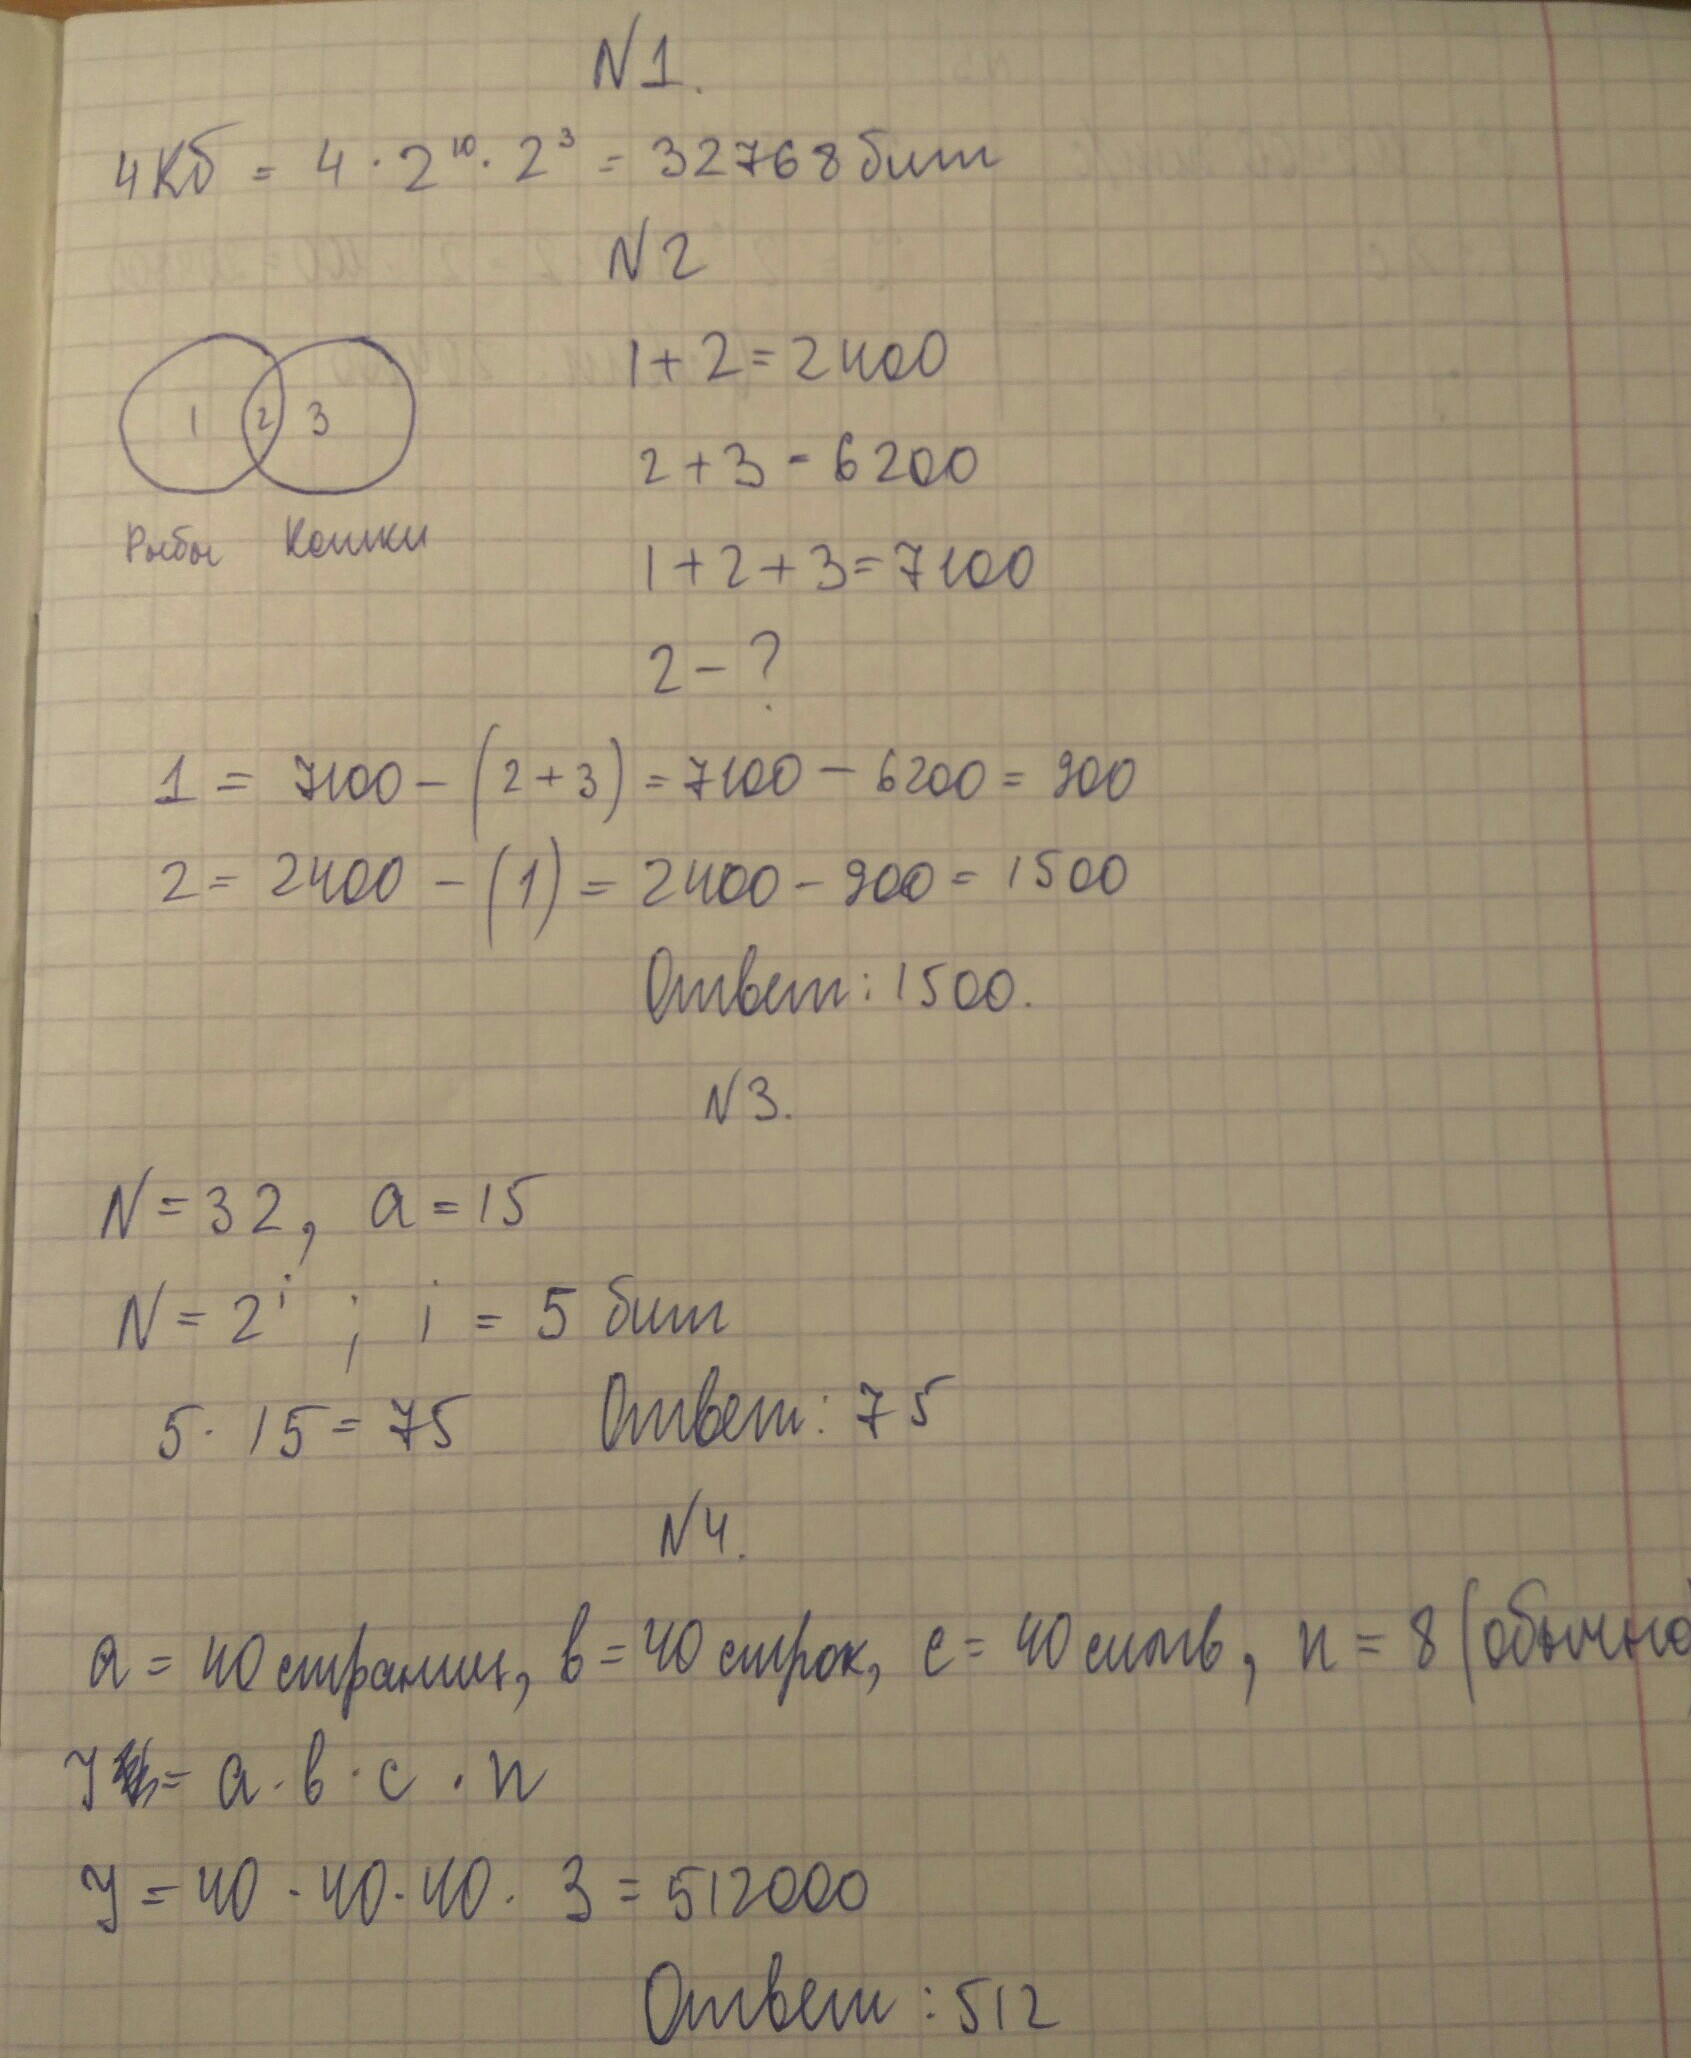 N1.
4Кб = 4 · 2¹⁰ · 2³ = 32768 бит
N2
1 2 3
Рыбы Кошки
1+2=2400
2+3-6200
1+2+3=7100
2-?
1 = 7100-(2+3)=7100-6200=900
2= 2400-(1)=2400-900=1500
Ответ: 1500.
N3.
N=32, a=15
N=2ⁱ ; i = 5 бит
5·15=75 Ответ: 75
N4.
a=40 страниц, в=40 строк, c=40 симв, n=8 (обычно)
У = a·в·c·n
У=40·40·40·3=512000
Ответ: 512